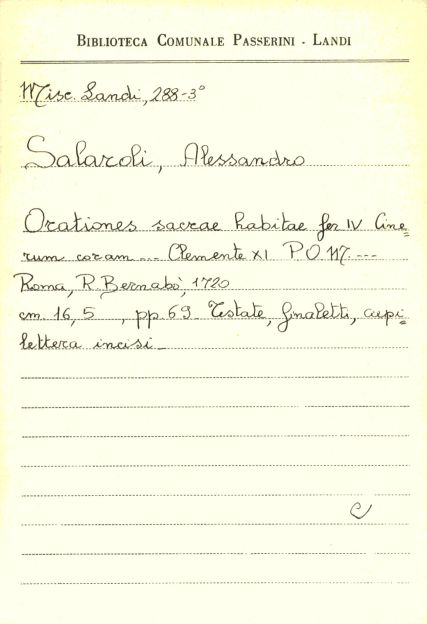 BIBLIOTECA COMUNALE PASSERINI - LANDI
Misc. Landi, 288-3°
Salaroli, Alessandro
Orationes sacrae habitae fer IV Cine=
rum coram ... Clemente XI P.O.M. ---
Roma, R. Bernabò, 1720
cm. 16,5 , pp. 69. Testate, finaletti, capi=
lettera incisi_